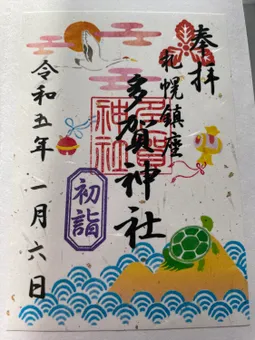 奉拝
札幌鎮座
多賀神社
多賀神社
初詣
令和五年 一月六日